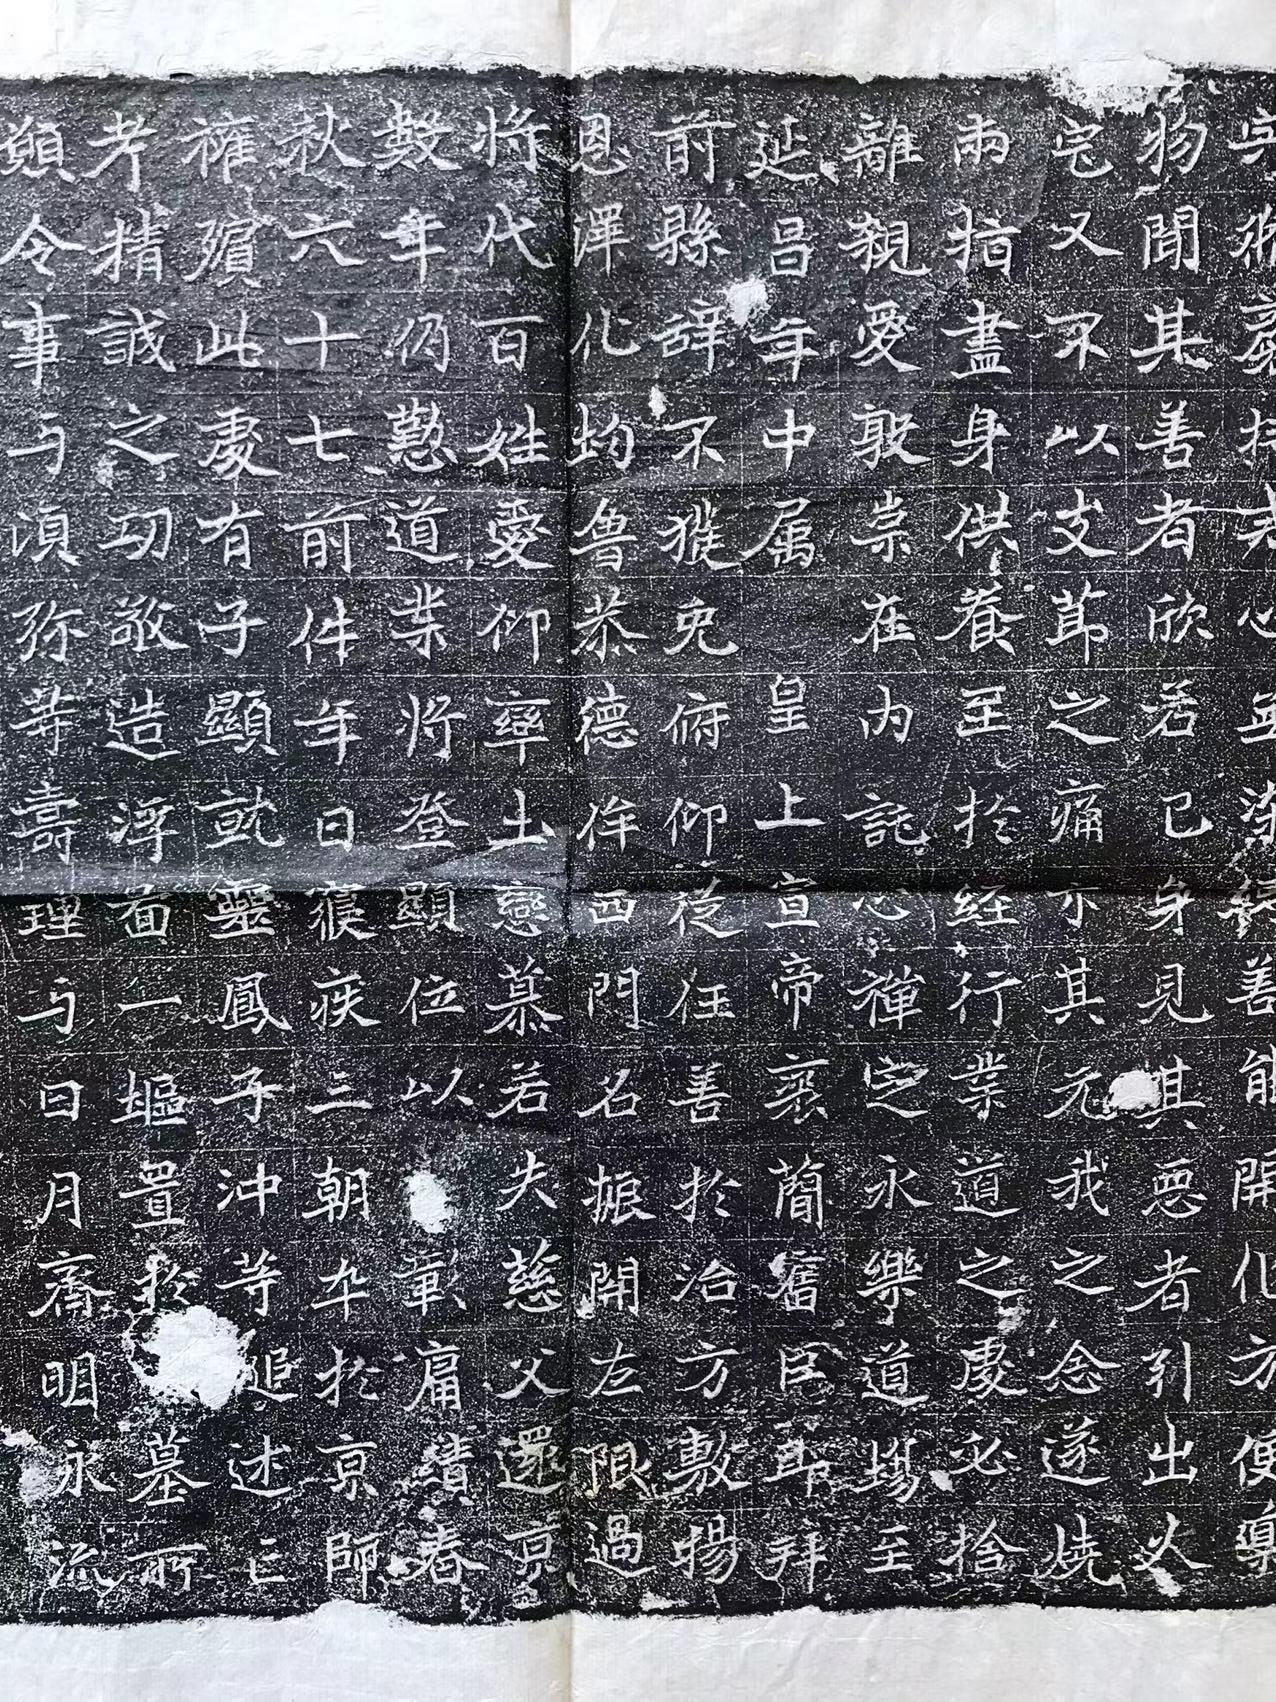 善能開化方便導
物聞其善者欣若己身見其惡者引出火
宅又不以支莭之痛亦其元我之念遂燒
兩指盡身供養至於經行業道之處必捨
離親愛敦崇在内託心禪定永樂道場至
延吕年中属皇上宣帝衷簡舊臣耳拜
前縣辞不獲免俯仰從任善於治方敷揚
恩澤化均魯恭德侔西門名振開左限過
將代百姓愛仰率土戀慕若失慈父還京
數年仍懃道業將登顯位以彰庸績春
秋六十七前件年日寢疾三朝卒於京師
權殯此處有子顯就靈鳳子沖等追述亡
考精誠之功敬造浮啚一塸置於墓所
願令事与湏弥等壽理与日月齊明永流